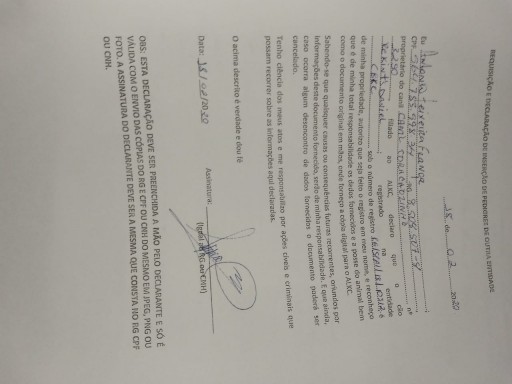 REQUISIÇÃO E DECLARAÇÃO DE INSERÇÃO DE PEDIGREE DE OUTRA ENTIDADE
18 de 02 2020
Eu
CPF
proprietário do canil nº
filiado ao ALKC, declaro que o cão
registrado na entidade
CBKC sob o número de registro
de minha propriedade, autorizo que seja feito o registro em meu nome, e reconheço
que é de minha total responsabilidade os dados fornecidos e a posse do animal bem
como o documento original em mãos, onde forneço a cópia digital para o ALKC.
Sabendo-se que quaisquer causas ou consequências futuras recorrentes, oriundos por
informações deste documento fornecido, serão de minha responsabilidade. E que ainda,
caso ocorra algum desencontro de dados fornecidos o documento poderá ser
cancelado.
Tenho ciência dos meus atos e me responsabilizo por ações cíveis e criminais que
possam recorrer sobre as informações aqui declaradas.
O acima descrito é verdade e dou fé
Data: 18/02/2020 Assinatura:
(Igual ao RG ou CNH)
OBS: ESTA DECLARAÇÃO DEVE SER PREENCHIDA A MÃO PELO DECLARANTE E SÓ É
VÁLIDA COM O ENVIO DAS CÓPIAS DO RG E CPF OU CNH DO MESMO EM JPEG, PNG OU
FOTO. A ASSINATURA DO DECLARANTE DEVE SER A MESMA QUE CONSTA NO RG CPF
OU CNH.